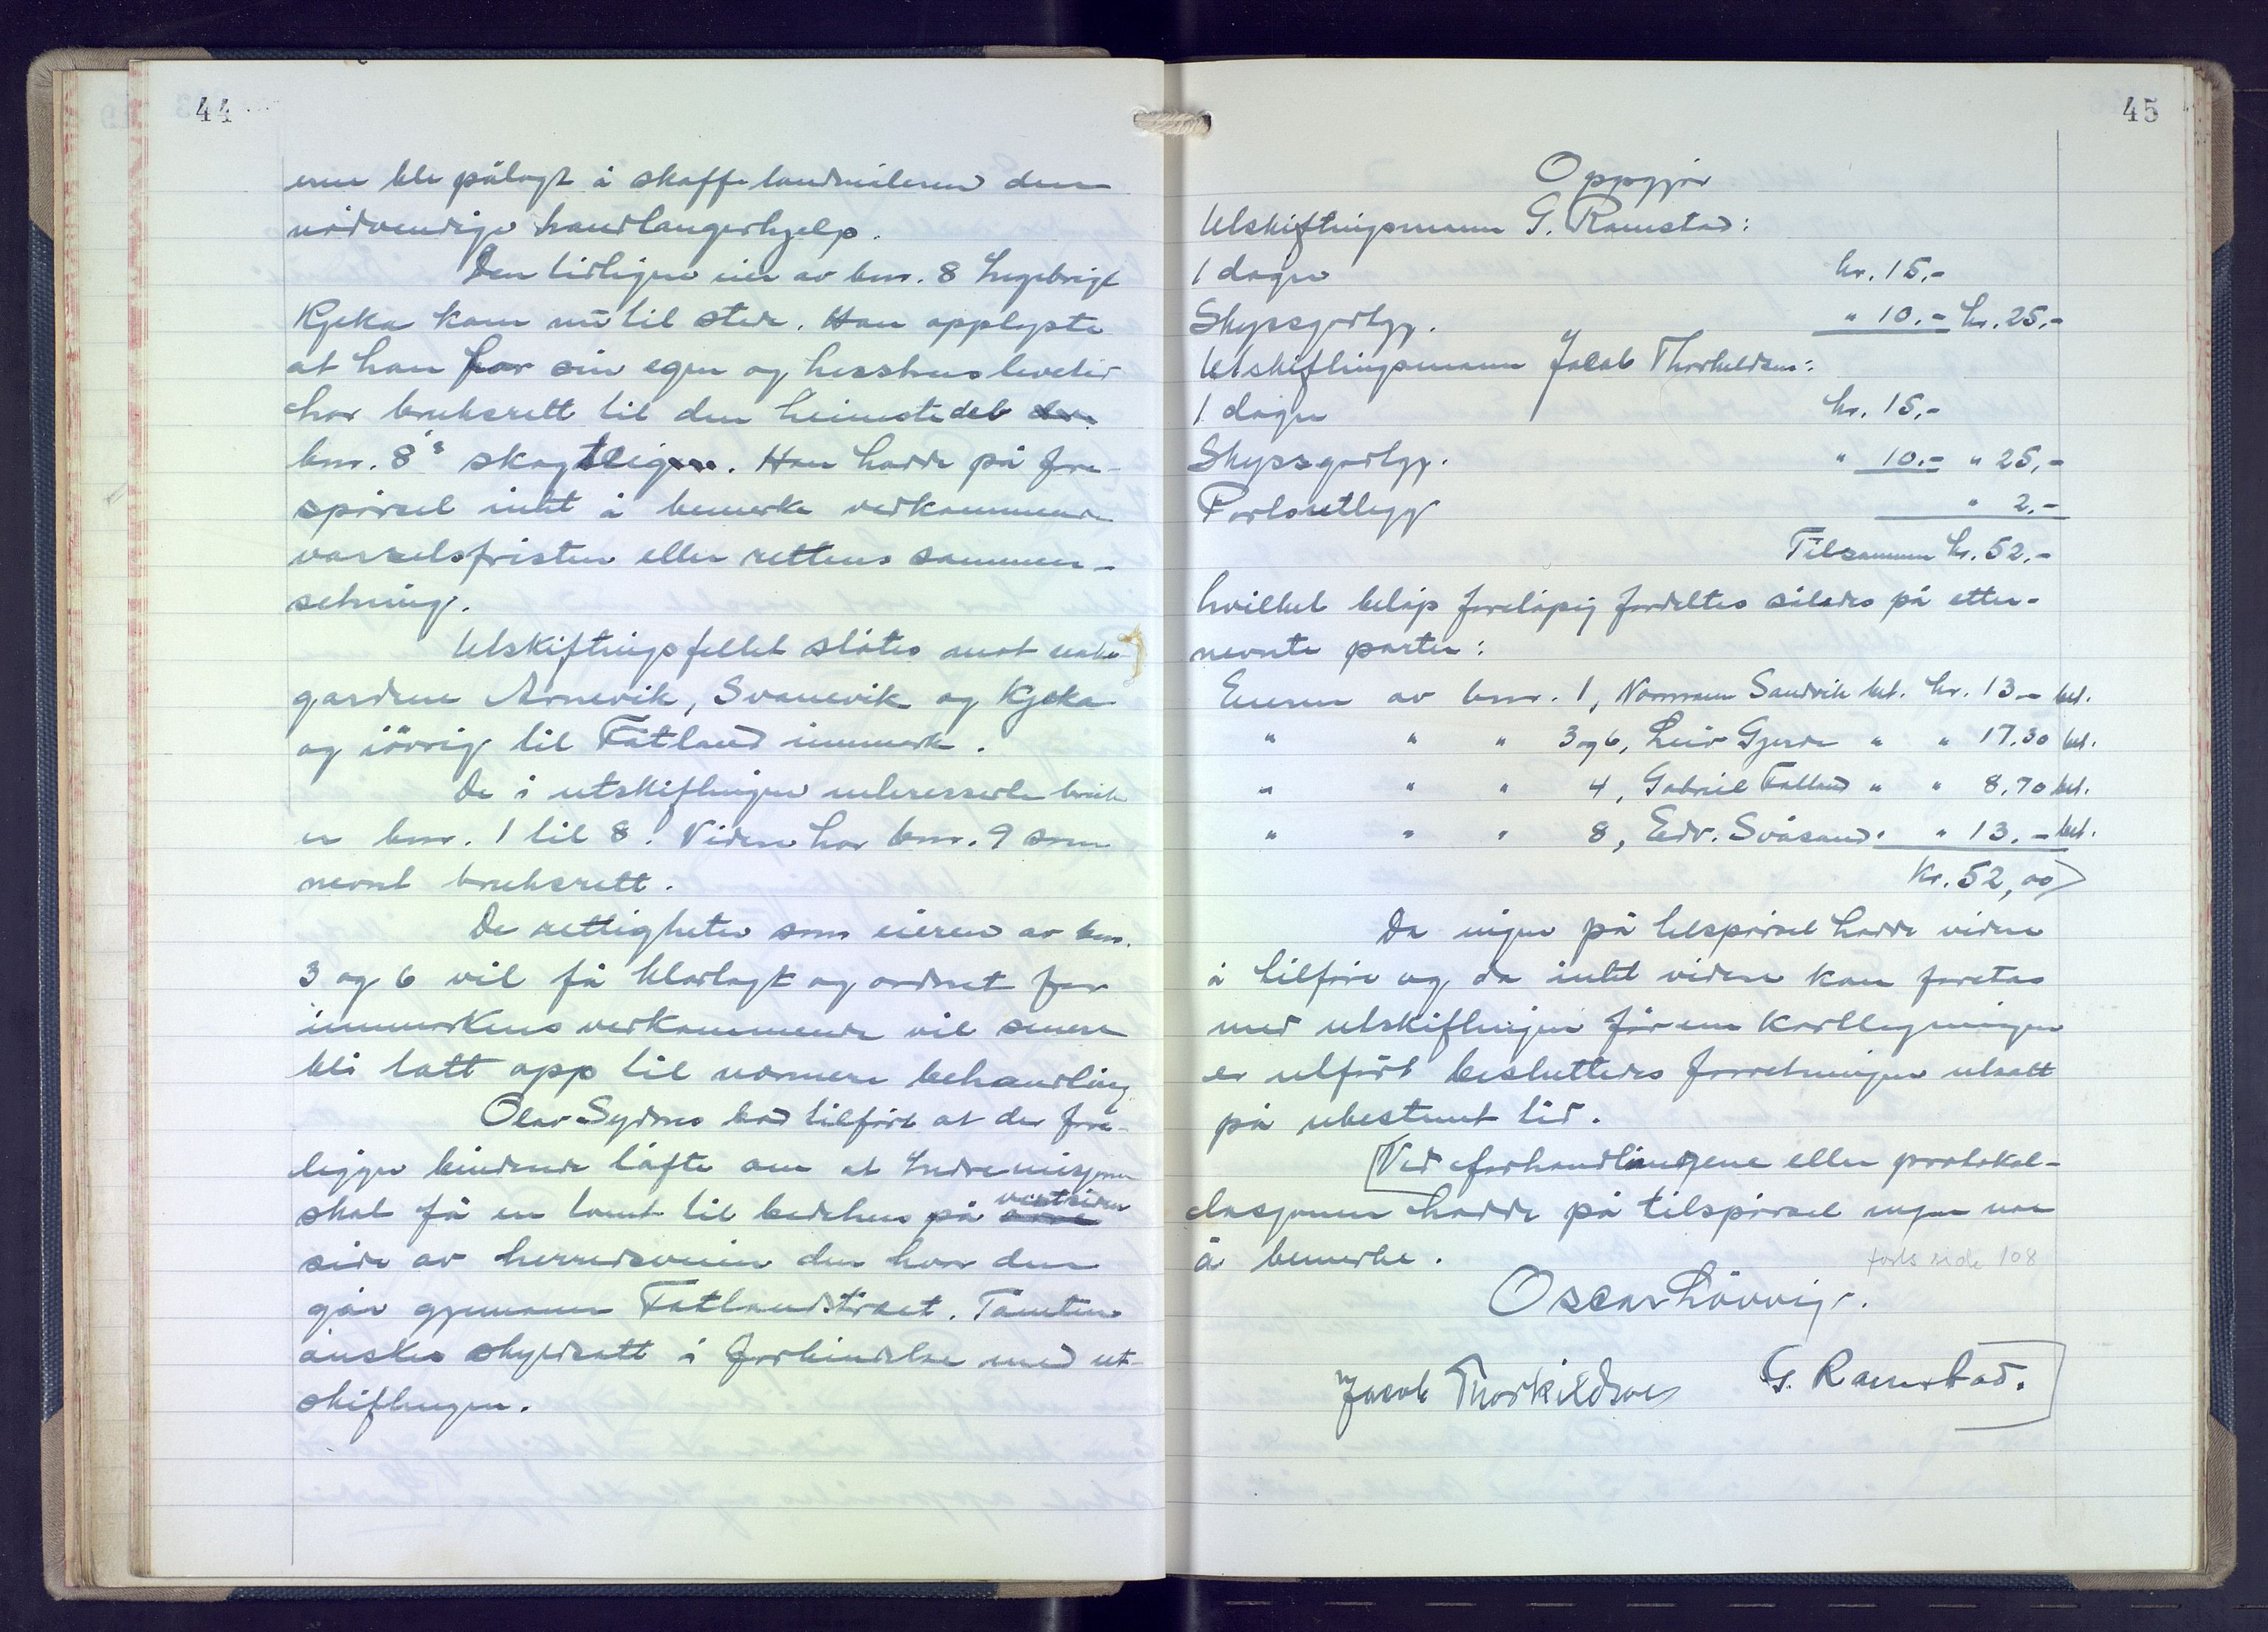 44
erne ble pålagt å skaffe landmåleren den
nödvendige handlangerhjelp.
Den tidligere eier av bnr. 8 Ingebrigt
Kjeka kom nu til stede. Han opplyste
at han for sin egen og hustrus levetid
har bruksrett til den heimste del
bnr. 8's skogteiger. Han hadde på fore-
spörsel intet å bemerke vedkommende
varselsfristen eller rettens sammen-
setning.
Utskiftingsfeltet stötes mot nabo-
gardene Arnevik, Svanevik og Kjeka
og iövrig til Fatland innmark.
De i utskiftingen interesserte bruk
er bnr. 1 til 8. Videre har bnr. 9 som
nevnt bruksrett.
De rettigheter som eieren av bnr.
3 og 6 vil få klarlagt og ordnet for
innmarkens vedkommende vil senere
bli tatt opp til nærmere behandling
Olav Sydnes bad tilfört at der fore-
ligger bindende löfte om at Indremisjonen
skal få en tomt til bedehus på vestsiden
side av herredsveien der hvor den
går gjennom Fatlandstræet. Tomten
önskes skyldsatt i forbindelse med ut-
skiftingen.
45
Oppgjör
Utskiftingsmann G. Ramstad:
1 dager kr. 15,-
Skyssgodtgj. " 10.- kr. 25,-
Utskiftingsmann Jacob Thorkildsen:
1 dager kr. 15,-
Skyssgodtgj. " 10.- " 25,-
Portoutlegg " 2,-
Tilsammen kr. 52,-
hvilket belöp forelöpig fordeltes således på etter-
nevnte parter:
Eieren av bnr. 1, Normann Sandvik bet. kr. 13- bet.
" " " 3 og 6, Leiv Gjerde " " 17.30 bet.
" " " 4, Gabriel Fatland " " 8,70 bet.
" " " 8, Edv. Svåsand " " 13.- bet.
Kr. 52,00
Da ingen på tilspörsel hadde videre
å tilföre og da intet videre kan foretas
med utskiftingen för enn kartlegningen
er utfört besluttedes forretningen utsatt
på ubestemt tid.
Ved forhandlingene eller protokol-
lasjonen hadde på tilspörsel ingen noe
å bemerke.
forts side 108
Oscar Lövvig.
Jacob Thorkildsen G. Ramstad.